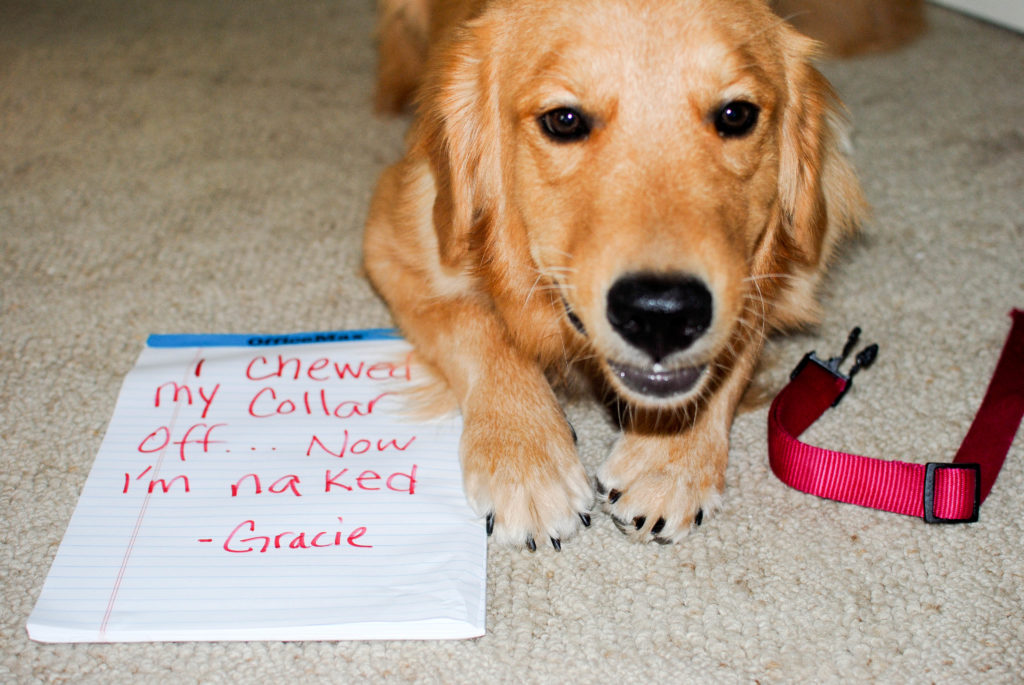 OfficeMax
I Chewed
my Collar
Off... Now
I'm naked
-Gracie